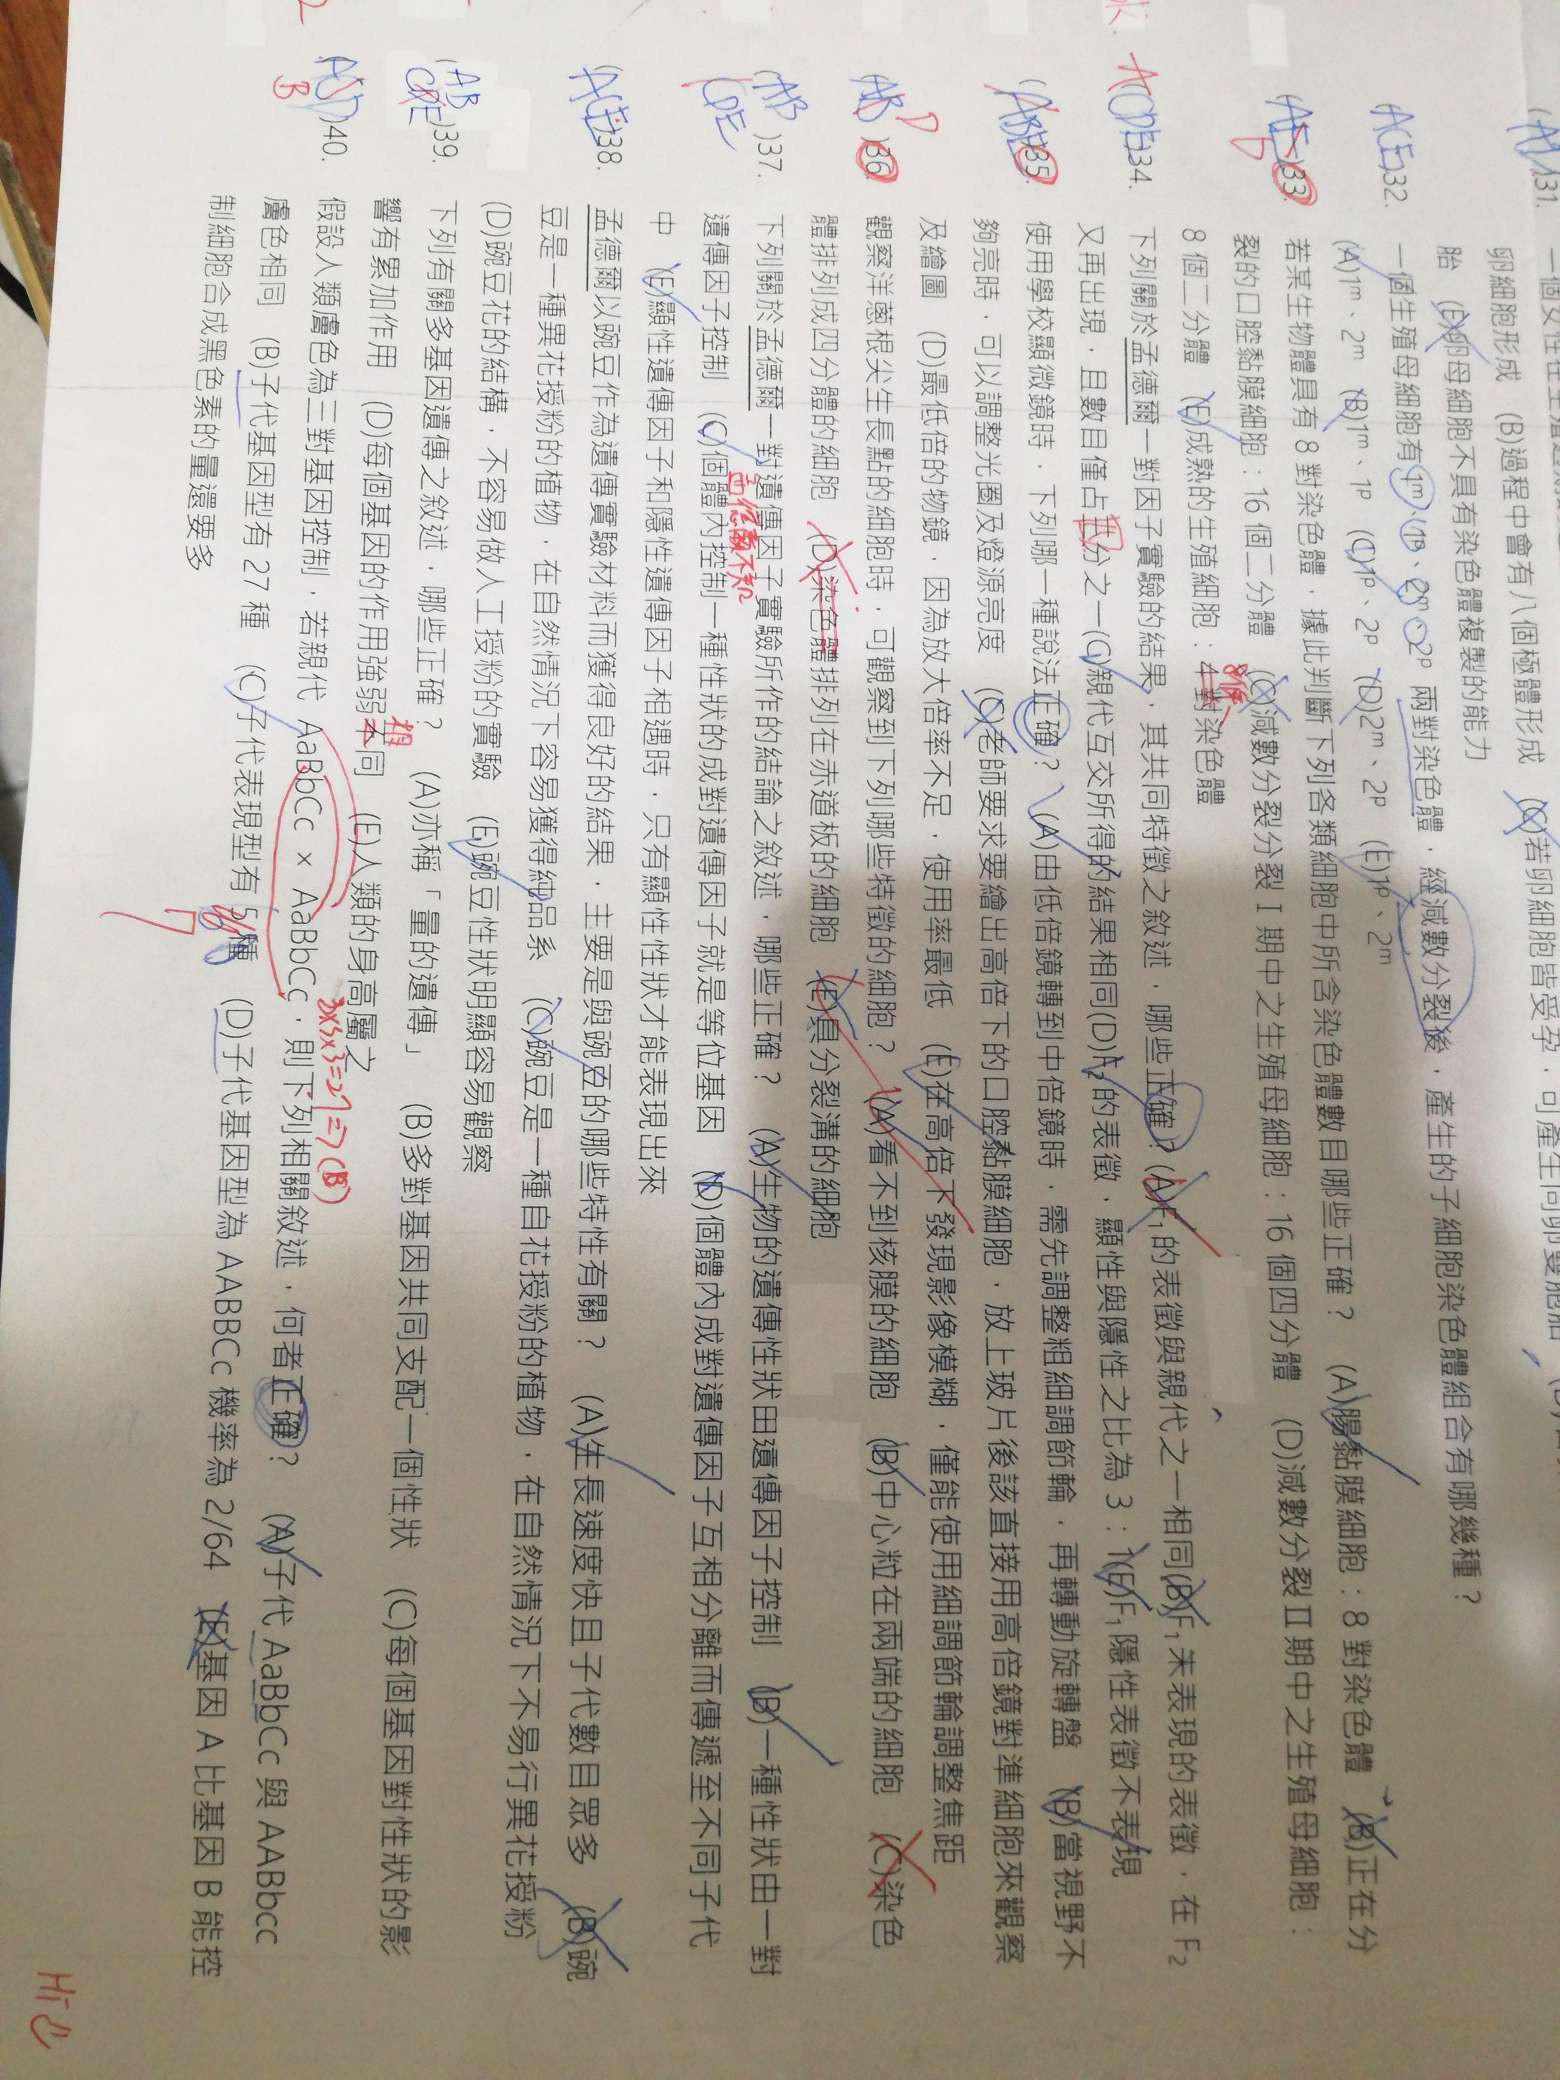 卵細胞形成 (B)過程中會有八個極體形成 (C)若卵細胞皆受孕，可產生同卵雙胞胎
胎 (E)卵母細胞不具有染色體複製的能力
(ACE)32. 一個生殖母細胞有 1ᵐ、1ᵖ、2ᵐ、2ᵖ 兩對染色體，經減數分裂後，產生的子細胞染色體組合有哪幾種？
(A)1ᵐ、2ᵐ (B)1ᵐ、1ᵖ (C)1ᵖ、2ᵖ (D)2ᵐ、2ᵖ (E)1ᵖ、2ᵐ
(AE)33. 若某生物體具有 8 對染色體，據此判斷下列各類細胞中所含染色體數目哪些正確？ (A)腸黏膜細胞：8 對染色體 (B)正在分
裂的口腔黏膜細胞：16 個二分體 (C)減數分裂分裂 I 期中之生殖母細胞：16 個四分體 (D)減數分裂 II 期中之生殖母細胞：
8 個二分體 (E)成熟的生殖細胞：4 對染色體
8個
(ACDE)34. 下列關於孟德爾一對因子實驗的結果，其共同特徵之敘述，哪些正確？(A)F₁的表徵與親代之一相同(B)F₁未表現的表徵，在 F₂
又再出現，且數目僅占二分之一(C)親代互交所得的結果相同(D)F₂的表徵，顯性與隱性之比為 3：1(E)F₁隱性表徵不表現
(ABE)35. 使用學校顯微鏡時，下列哪一種說法正確？ (A)由低倍鏡轉到中倍鏡時，需先調整粗細調節輪，再轉動旋轉盤 (B)當視野不
夠亮時，可以調整光圈及燈源亮度 (C)老師要求要繪出高倍下的口腔黏膜細胞，放上玻片後該直接用高倍鏡對準細胞來觀察
及繪圖 (D)最低倍的物鏡，因為放大倍率不足，使用率最低 (E)在高倍下發現影像模糊，僅能使用細調節輪調整焦距
(AB)36. 觀察洋蔥根尖生長點的細胞時，可觀察到下列哪些特徵的細胞？ (A)看不到核膜的細胞 (B)中心粒在兩端的細胞 (C)染色
D
體排列成四分體的細胞 (D)染色體排列在赤道板的細胞 (E)具分裂溝的細胞
(AB CDE)37. 下列關於孟德爾一對遺傳因子實驗所作的結論之敘述，哪些正確？ (A)生物的遺傳性狀由遺傳因子控制 (B)一種性狀由一對
遺傳因子控制 (C)個體內控制一種性狀的成對遺傳因子就是等位基因 (D)個體內成對遺傳因子互相分離而傳遞至不同子代
中 (E)顯性遺傳因子和隱性遺傳因子相遇時，只有顯性性狀才能表現出來
(ACE)38. 孟德爾以豌豆作為遺傳實驗材料而獲得良好的結果，主要是與豌豆的哪些特性有關？ (A)生長速度快且子代數目眾多 (B)豌
豆是一種異花授粉的植物，在自然情況下容易獲得純品系 (C)豌豆是一種自花授粉的植物，在自然情況下不易行異花授粉
(D)豌豆花的結構，不容易做人工授粉的實驗 (E)豌豆性狀明顯容易觀察
(AB CDE)39. 下列有關多基因遺傳之敘述，哪些正確？ (A)亦稱「量的遺傳」 (B)多對基因共同支配一個性狀 (C)每個基因對性狀的影
響有累加作用 (D)每個基因的作用強弱不同 (E)人類的身高屬之
相
3×3×3=27=>(B)
B
40. 假設人類膚色為三對基因控制，若親代 AaBbCc × AaBbCc，則下列相關敘述，何者正確？ (A)子代 AaBbCc 與 AABbcc
膚色相同 (B)子代基因型有 27 種 (C)子代表現型有 5 種 (D)子代基因型為 AABBCc 機率為 2/64 (E)基因 A 比基因 B 能控
7
制細胞合成黑色素的量還要多
Hi